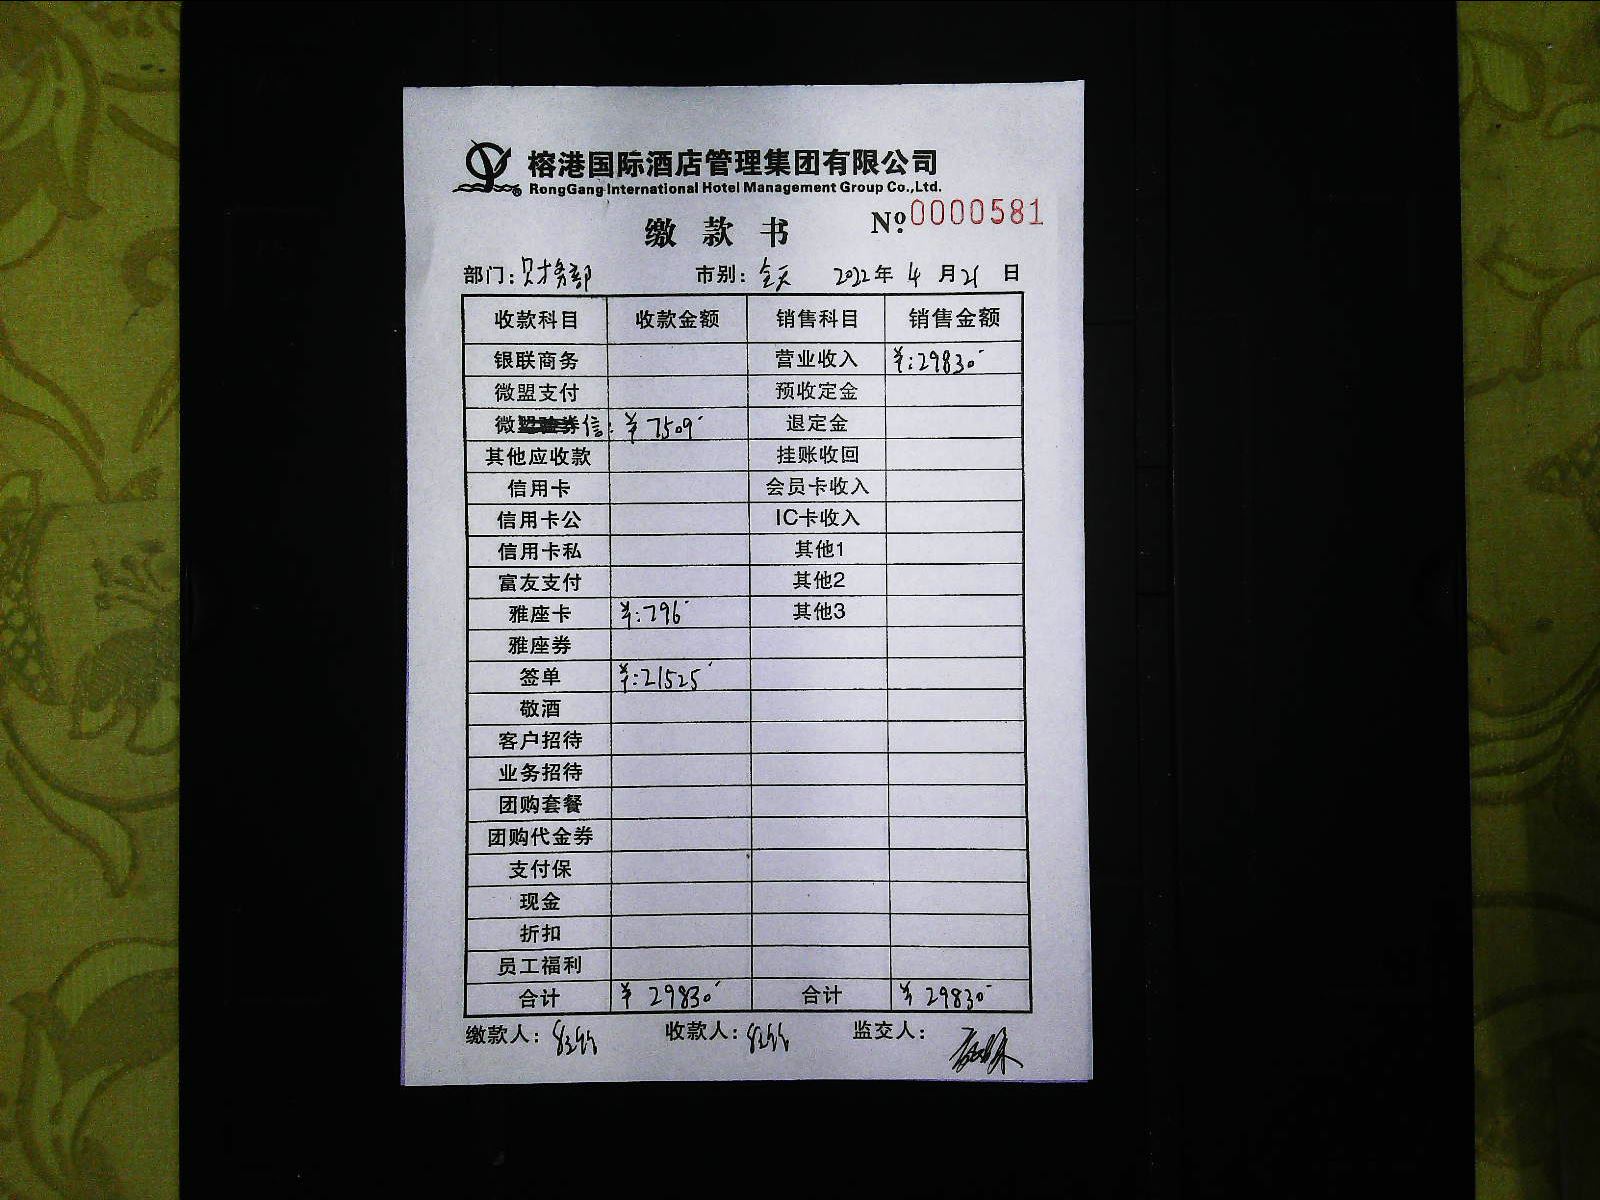 榕港国际酒店管理集团有限公司
RongGang International Hotel Management Group Co.,Ltd.
缴款书 № 0000581
部门：财务部 市别：全天 2022年4月21日
收款科目 收款金额 销售科目 销售金额
银联商务 营业收入 ¥:29830
微盟支付 预收定金
微信：¥7509 退定金
其他应收款 挂账收回
信用卡 会员卡收入
信用卡公 IC卡收入
信用卡私 其他1
富友支付 其他2
雅座卡 ¥:796 其他3
雅座券
签单 ¥:21525
敬酒
客户招待
业务招待
团购套餐
团购代金券
支付保
现金
折扣
员工福利
合计 ¥ 29830 合计 ¥ 29830
缴款人： 收款人： 监交人：